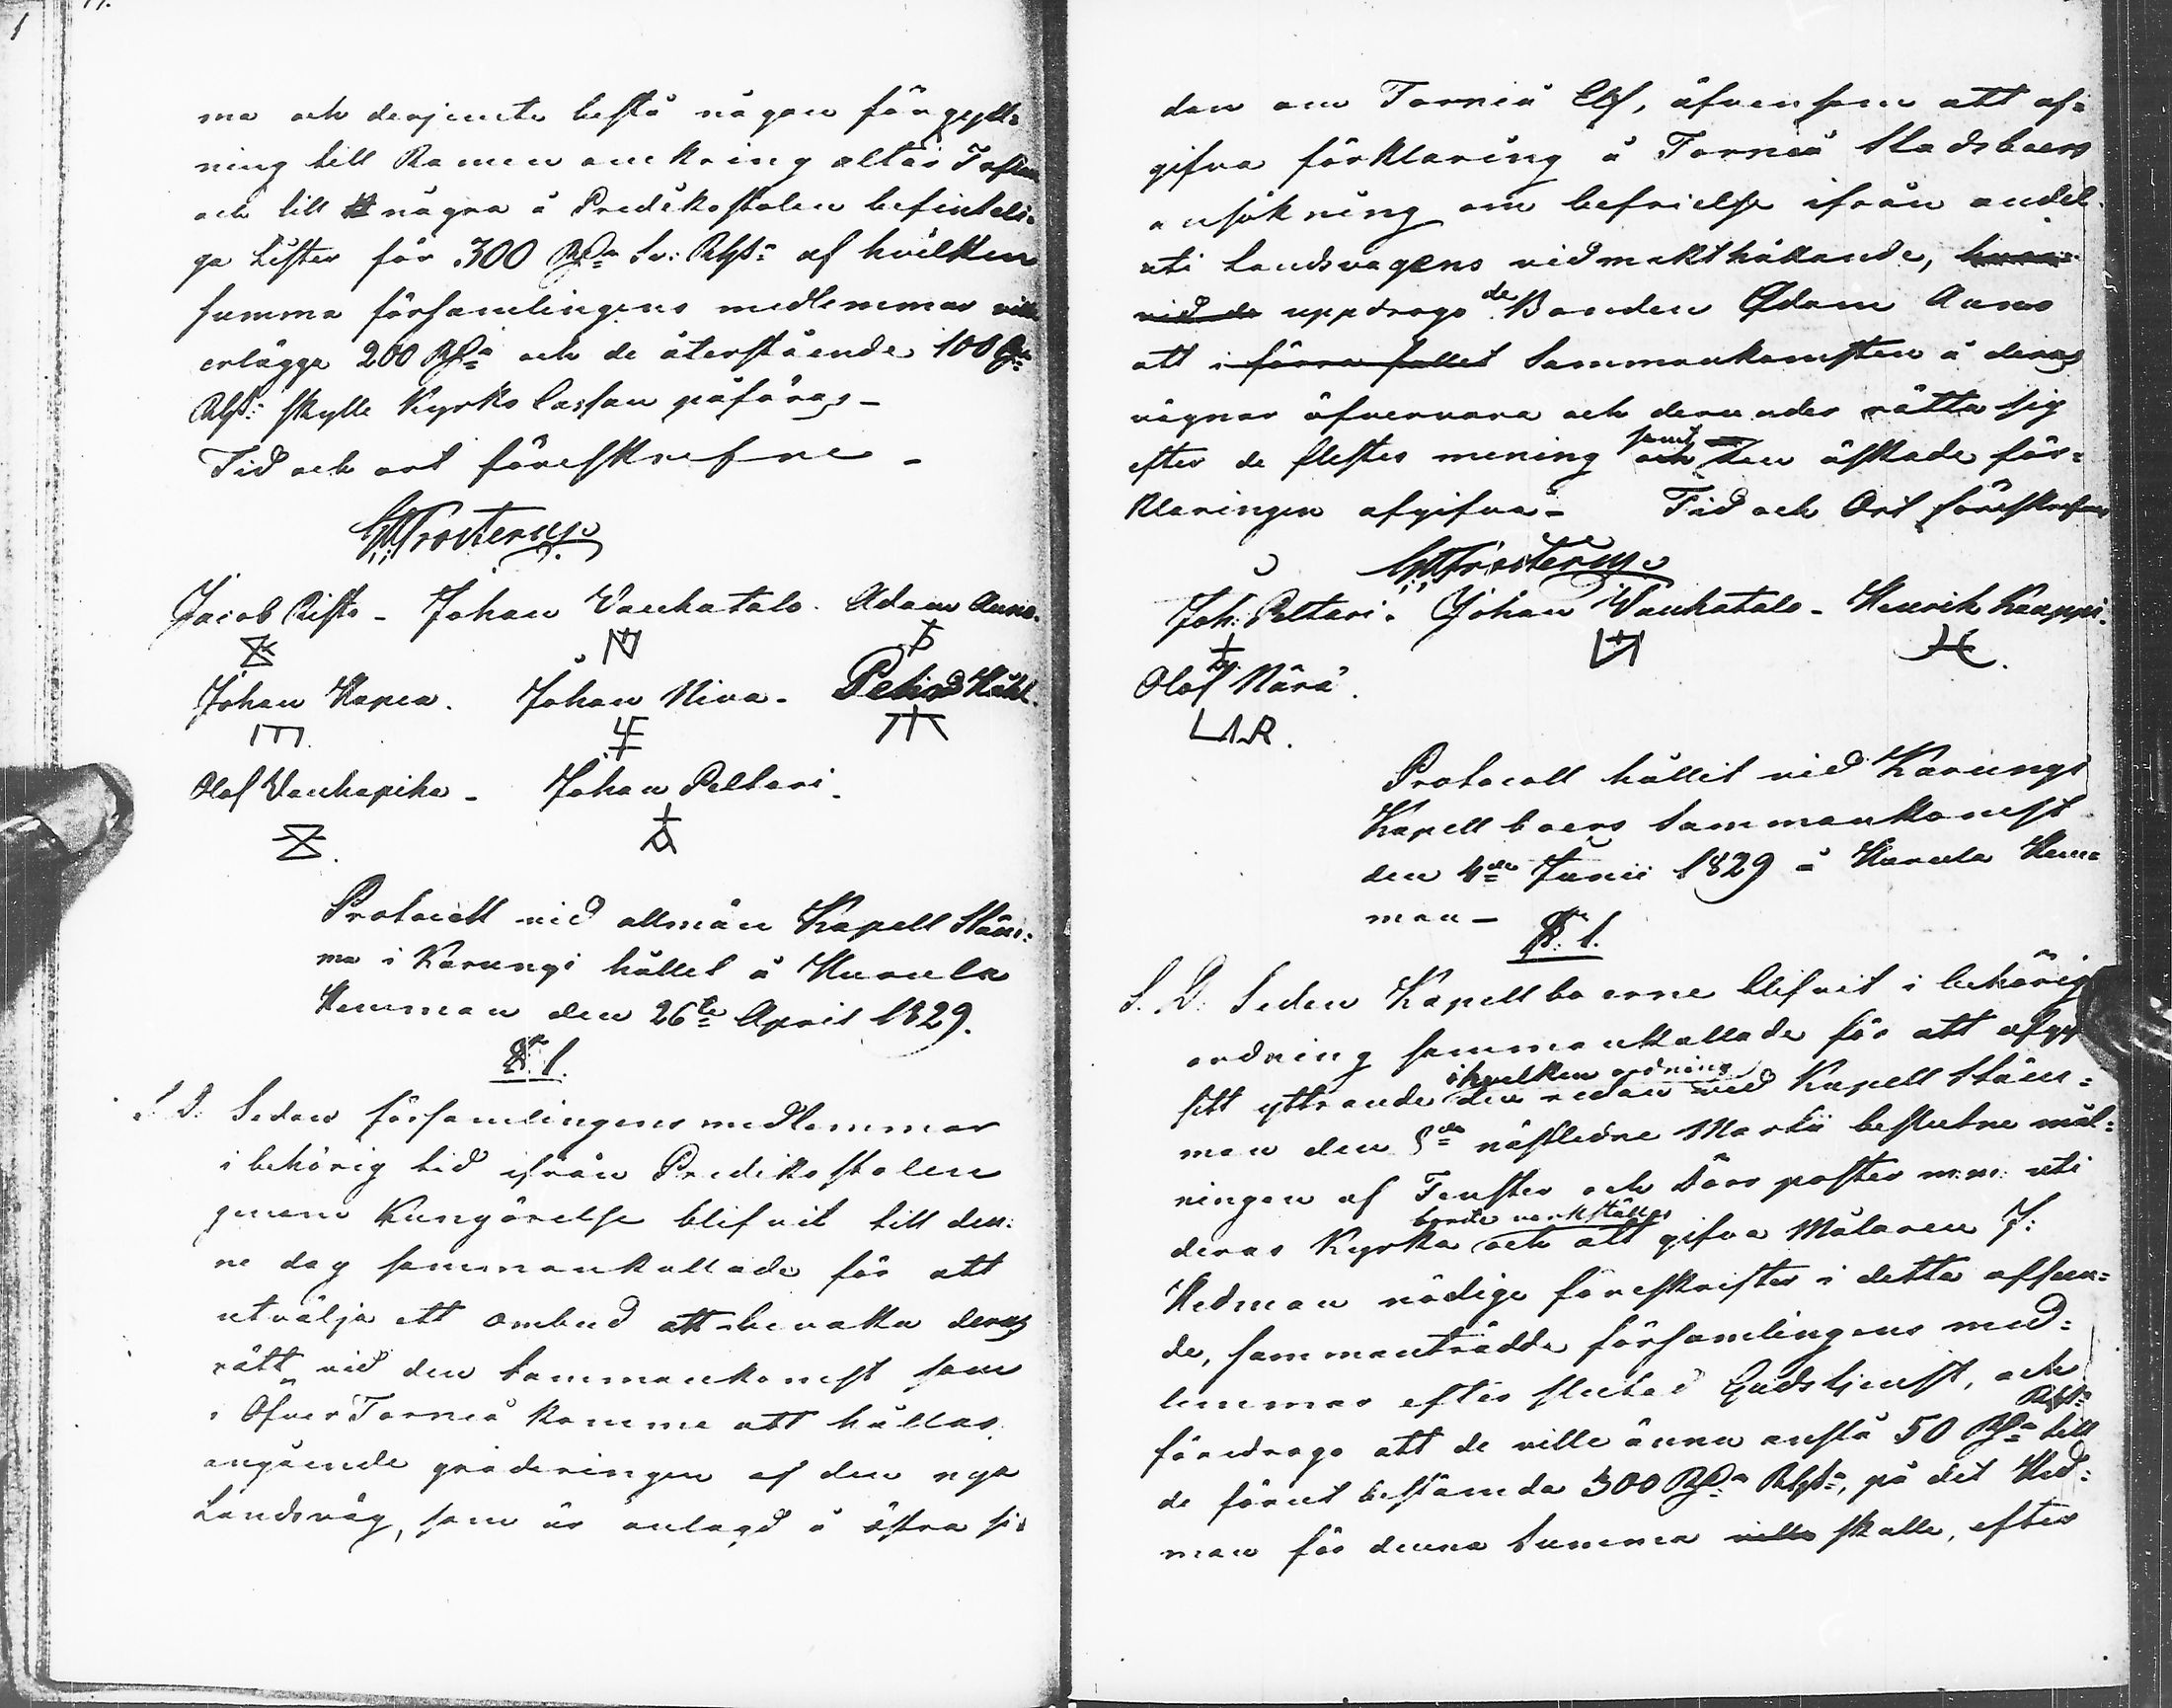 ma och derjemte bestå någon förgyll=
ning till Ramen omkring altar Taflan
och till några å Predikostolen befinteli=
ga Lister för 300 Rd Sv: Rgs: af hvilken
summa församlingens medlemmar ville
erlägga 200 Rd och de återstående 100 Rd
Rgs: skulle Kyrko Cassan påföras_
Tid och ort föreskrefne _
Frosterus
Jacob Risto _ Johan Vanhatalo. Adam Auno.
Johan Hapea. Johan Niva _ Pehr
Olof Vanhapiha _ Johan Peltari.
Protocoll vid allmän Kapell Stäm=
ma i Karungi hållet å Kurula
Hemman den 26te April 1829.
§. 1.
S. D. Sedan församlingens medlemmar
i behörig tid ifrån Predikostolen
genom Kungörelse blifvit till den=
ne dag sammankallade för att
utvälja ett ombud att bevaka deras
rätt vid den Sammankomst som
i ÖfverTorneå komme att hållas,
angående graderingen af den nya
Landsväg, som är anlagd å östra si=
dan om Torneå Elf, äfvensom att af=
gifva förklaring å Torneå Stadsboers
ansökning om befrielse ifrån andel
uti Landsvägens vidmakthållande,
vid de uppdrogo de Bonden Adam Auno
att i förra fallet Sammankomsten å deras
vägnar öfvervara och derunder rätta sig
efter de flestes mening samt och den äskade för=
klaringen afgifva _ Tid och Ort föreskrefne
Frosterus
Joh: Peltari. Johan Vanhatalo _ Henrik Kauppi.
Olof Närä.
LAR.
Protocoll hållit vid Karungi
Kapellboers Sammankomst
den 4de Junii 1829 å Kurula Hem=
man _
§. 1.
S. D. Sedan Kapellboerne blifvit i behörig
ordning sammankallade för att afge
i hvilken ordning
sitt yttrande den redan vid Kapell Stäm=
man den 8de nästledne Martii beslutne mål=
ningen af Fenster och Dörr poster m.m. uti
borde verkställas
deras Kyrka och att gifva Målaren J:
Hedman nödige föreskrifter i detta afseen=
de, sammanträdde församlingens med=
lemmar efter slutad Gudstjenst, och
Rgs:
föredrogo att de ville ännu anslå 50 Rd till
de förut bestämda 300 Rd Rgs:, på det Hed=
man för denna Summa ville skulle, efter